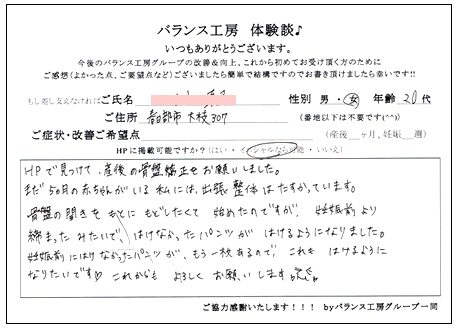 バランス工房 体験談♪
いつもありがとうございます。
今後のバランス工房グループの改善&向上、これから初めてお受け頂く方のために
ご感想(よかった点、ご要望点など)ございましたら簡単で結構ですのでお書き頂けましたら幸いです!!
もし差し支えなければご氏名 性別 男・女 年齢 20代
ご住所 春日部市大枝307 (番地以下は不要です(^^))
ご症状・改善ご希望点 (産後__ヶ月、妊娠__週)
HPに掲載可能ですか?(はい・イニシャルなら可能・いいえ)
HPで見つけて、産後の骨盤矯正をお願いしました。
まだ5ヶ月の赤ちゃんがいる私には、出張整体はたすかっています。
骨盤の開きをもとにもどしたくて始めたのですが、妊娠前より
締まったみたいで、はけなかったパンツがはけるようになりました。
妊娠前にはけなかったパンツが、もう一枚あるので、これもはけるように
なりたいです♡ これからもよろしくお願いします
ご協力感謝いたします!!! byバランス工房グループ一同